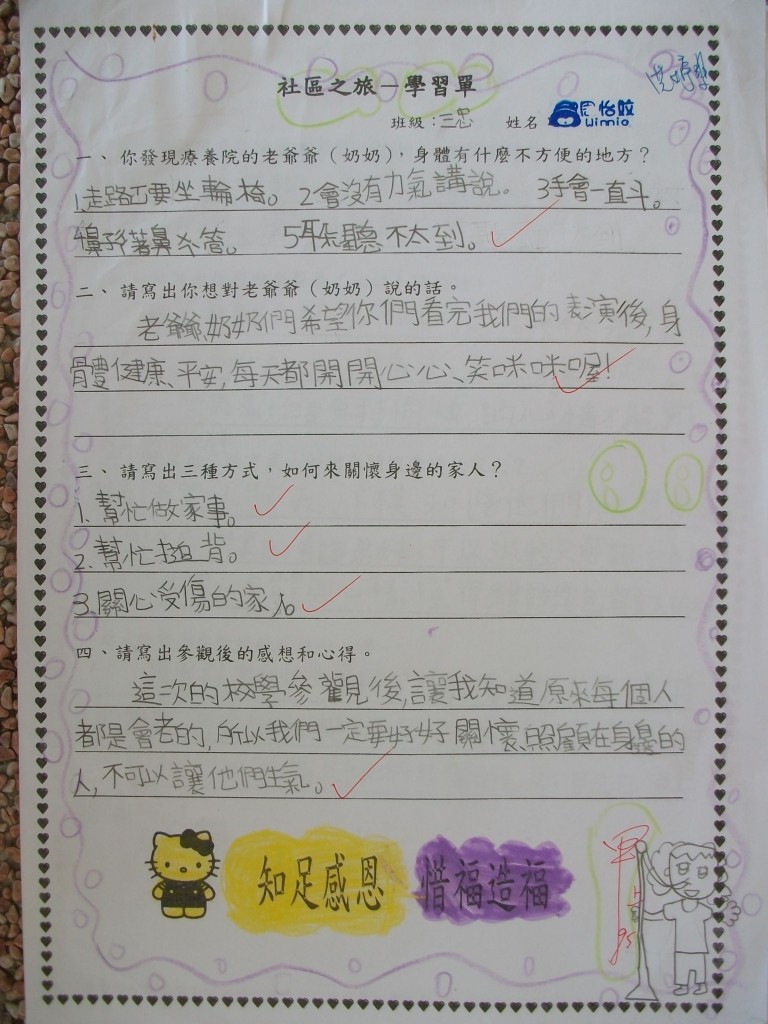 社區之旅－學習單
班級：三忠 姓名：周怡皎
Winnio
一、你發現療養院的老爺爺（奶奶），身體有什麼不方便的地方？
1.走路要坐輪椅。 2會沒有力氣講說。 3手會一直斗。
4鼻子著鼻米管。 5耳朵聽不太到。
二、請寫出你想對老爺爺（奶奶）說的話。
老爺爺、奶奶們希望你們看完我們的表演後，身
體健康、平安，每天都開開心心、笑咪咪喔！
三、請寫出三種方式，如何來關懷身邊的家人？
1.幫忙做家事。
2.幫忙搥背。
3.關心受傷的家人。
四、請寫出參觀後的感想和心得。
這次的校學參觀後，讓我知道原來每個人
都是會老的，所以我們一定要好好關懷、照顧在身邊的
人，不可以讓他們生氣。
知足感恩 惜福造福
甲上
95